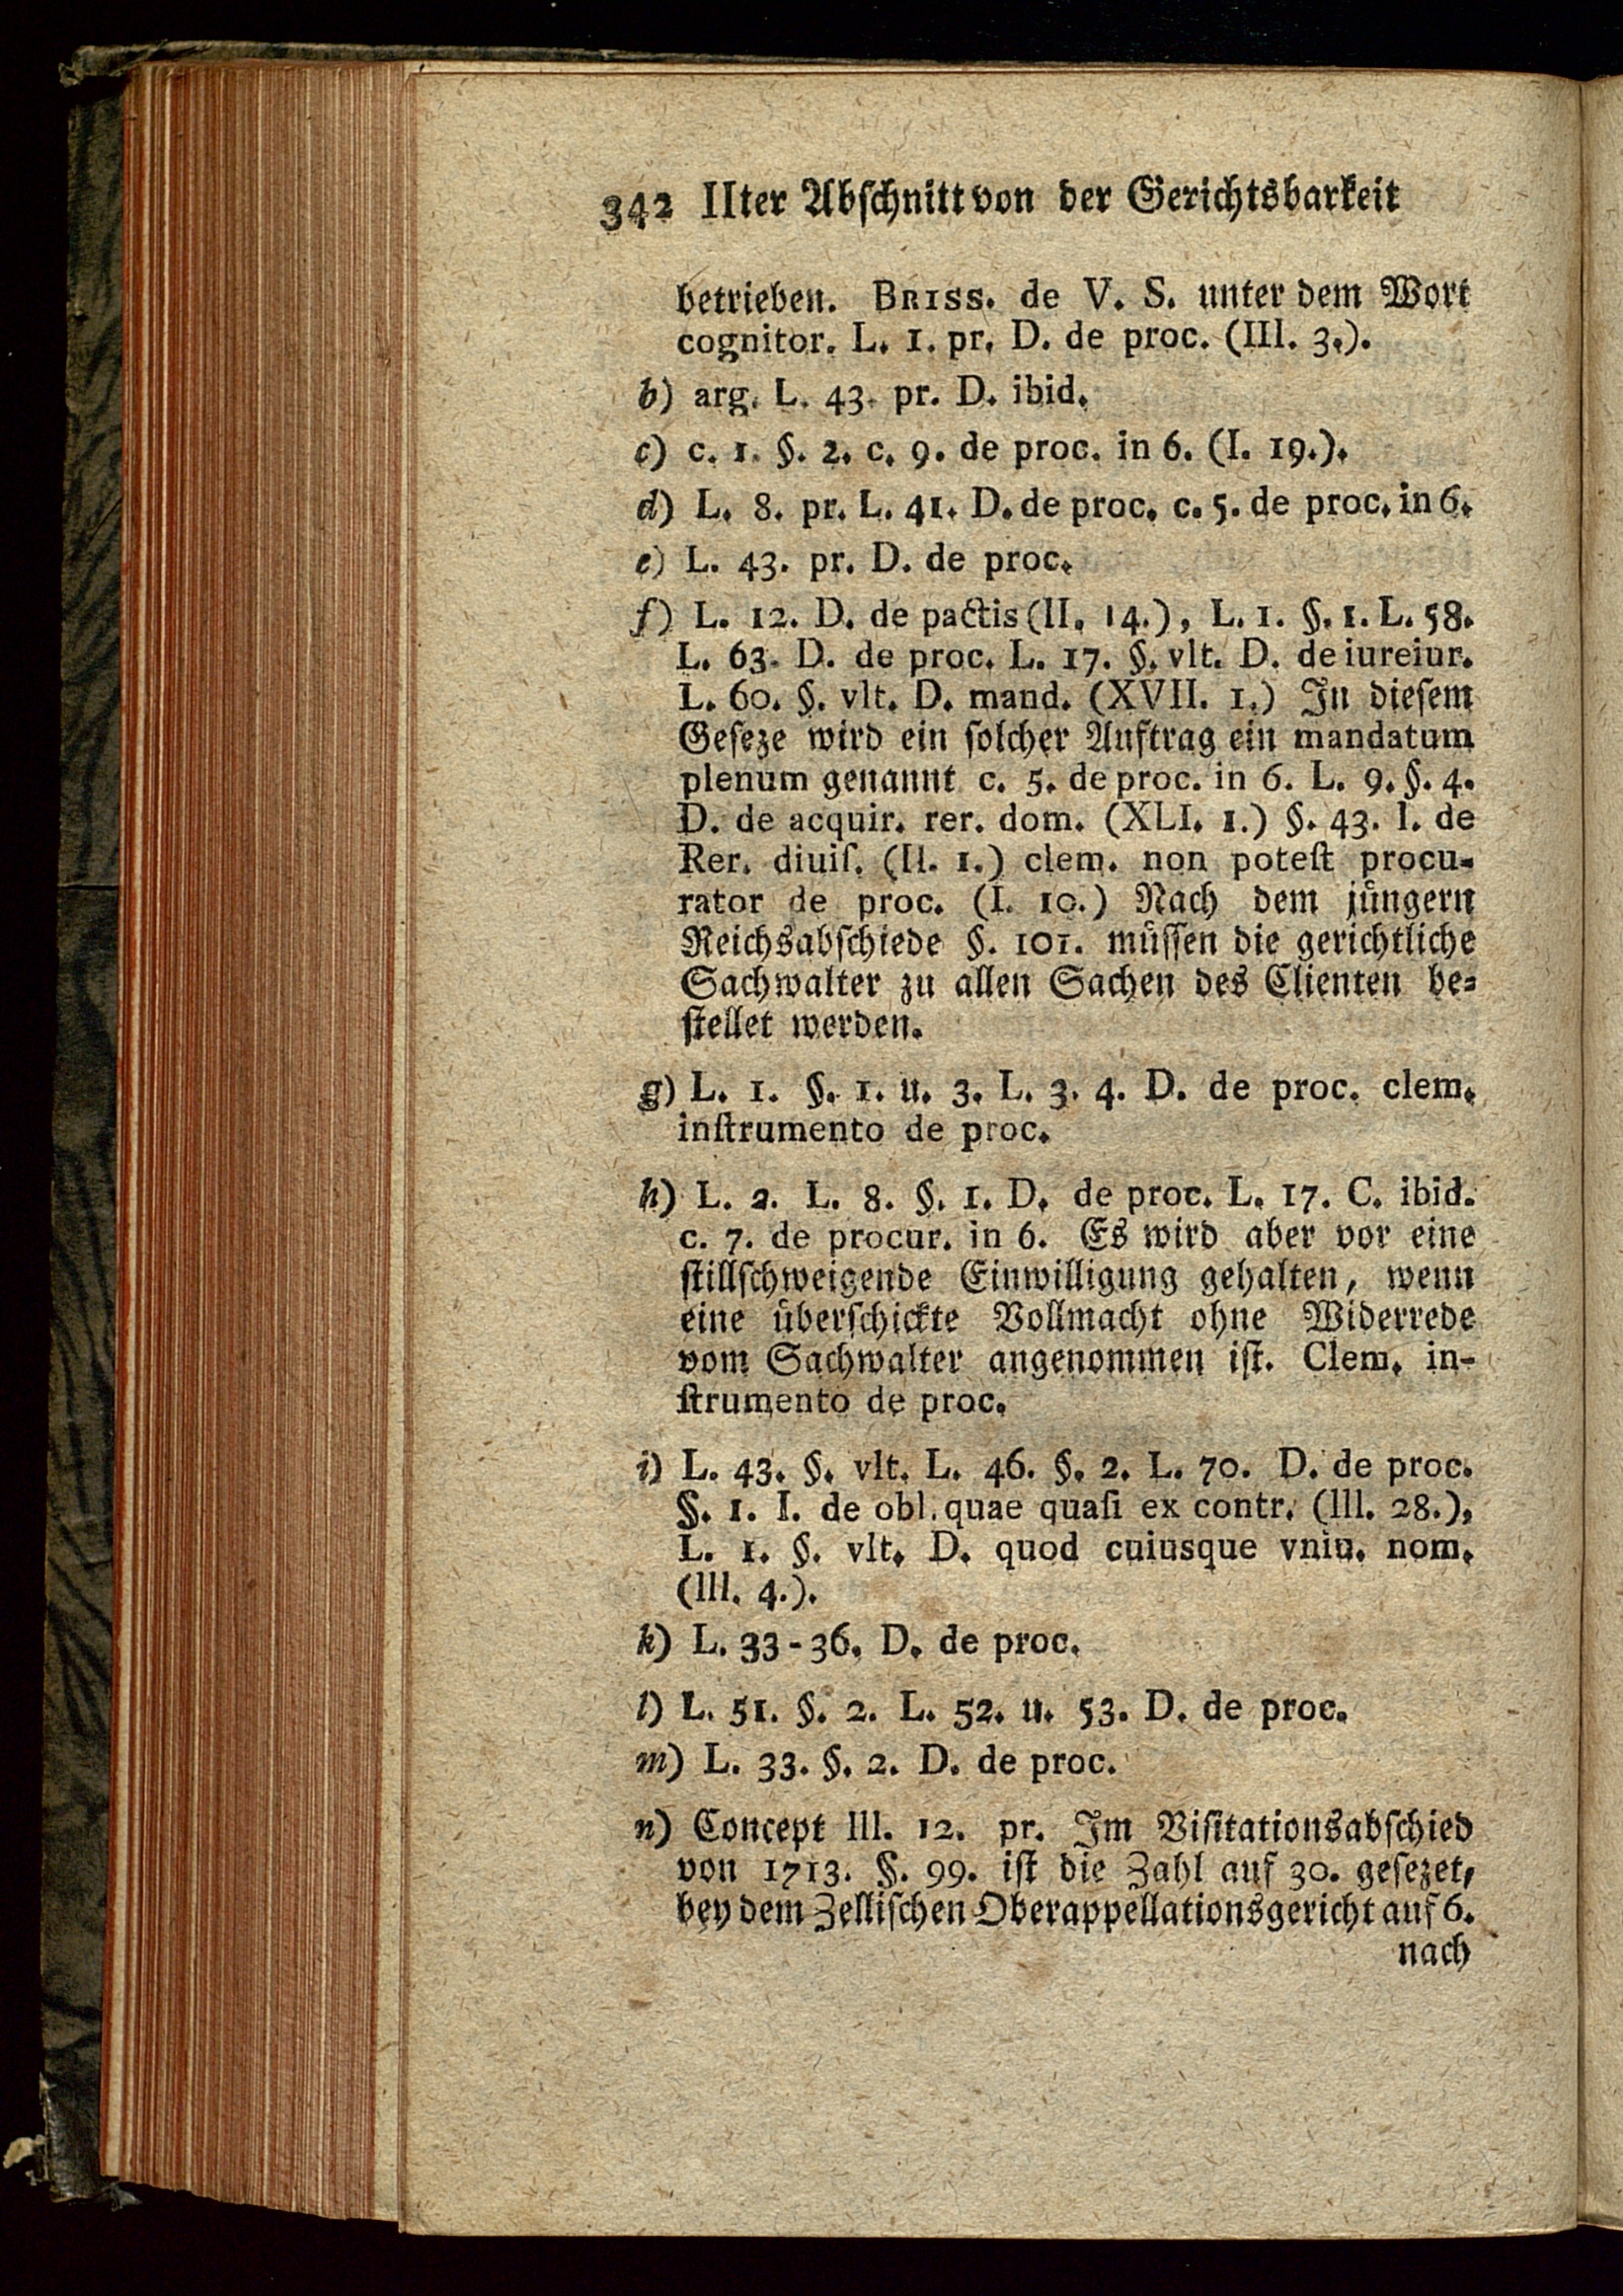 342 IIter Abschnitt von der Gerichtsbarkeit
betrieben. BRISS. de V. S. unter dem Wort
cognitor. L. 1. pr. D. de proc. (III. 3.).
b) arg. L. 43. pr. D. ibid.
c) c. 1. §. 2. c. 9. de proc. in 6. (I. 19.).
d) L. 8. pr. L. 41. D. de proc. c. 5. de proc. in 6.
e) L. 43. pr. D. de proc.
f) L. 12. D. de pactis (II. 14.), L. 1. §. 1. L. 58.
L. 63. D. de proc. L. 17. §. vlt. D. de iureiur.
L. 60. §. vlt. D. mand. (XVII. 1.) In diesem
Geseze wird ein solcher Auftrag ein mandatum
plenum genannt c. 5. de proc. in 6. L. 9. §. 4.
D. de acquir. rer. dom. (XLI. 1.) §. 43. I. de
Rer. diuiſ. (II. 1.) clem. non poteſt procu-
rator de proc. (I. 10.) Nach dem jüngern
Reichsabschiede §. 101. müssen die gerichtliche
Sachwalter zu allen Sachen des Clienten be-
stellet werden.
g) L. 1. §. 1. u. 3. L. 3. 4. D. de proc. clem.
inſtrumento de proc.
h) L. 2. L. 8. §. 1. D. de proc. L. 17. C. ibid.
c. 7. de procur. in 6. Es wird aber vor eine
stillschweigende Einwilligung gehalten, wenn
eine überschickte Vollmacht ohne Widerrede
vom Sachwalter angenommen ist. Clem. in-
ſtrumento de proc.
i) L. 43. §. vlt. L. 46. §. 2. L. 70. D. de proc.
§. 1. I. de obl. quae quaſi ex contr. (III. 28.),
L. 1. §. vlt. D. quod cuiusque vniu. nom.
(III. 4.).
k) L. 33-36. D. de proc.
l) L. 51. §. 2. L. 52. u. 53. D. de proc.
m) L. 33. §. 2. D. de proc.
n) Concept III. 12. pr. Im Visitationsabschied
von 1713. §. 99. ist die Zahl auf 30. gesezet,
bey dem Zellischen Oberappellationsgericht auf 6.
nach